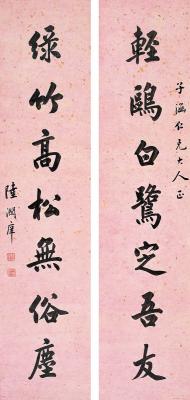 子涵仁兄大人正
輕鷗白鷺定吾友
綠竹高松無俗塵
陸潤庠